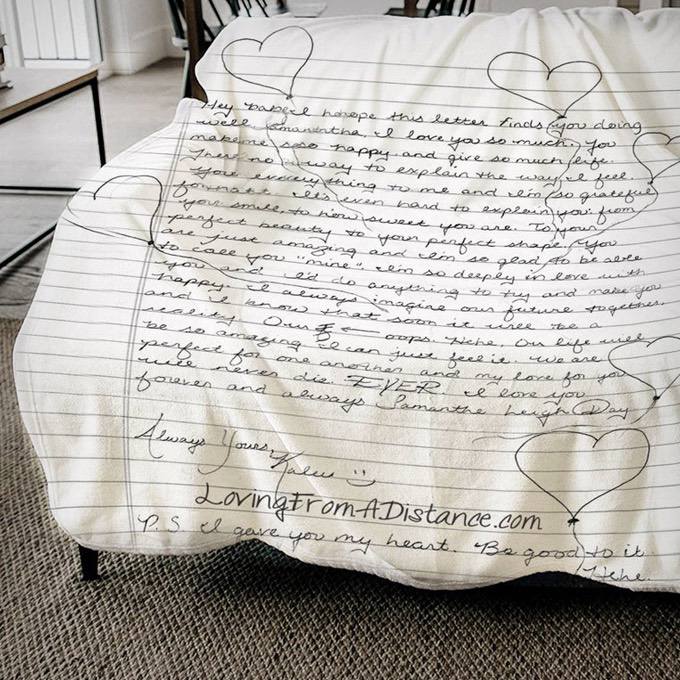 Hey babe I hope this letter finds you doing
well Samantha. I love you so much. You
make me soso happy and give so much life.
There no way to explain the way I feel.
You everything to me and I'm so grateful
It's even hard to explain you: from
your smile, to how sweet you are. To your
perfect beauty to your perfect shape. You
are just amazing and I'm so glad to be able
to call you "mine". I'm so deeply in love with
you and I'd do anything to try and make you
happy. I always imagine our future together
and I know that soon it will be a
reality. Our ← oops. Hehe. Our life will
be so amazing I can just feel it. We are
perfect for one another and my love for you
will never die. EVER. I love you
forever and always Samantha Leigh Day
Always Yours,
Kaleu
LovingFromADistance.com
P.S. I gave you my heart. Be good to it
Hehe.